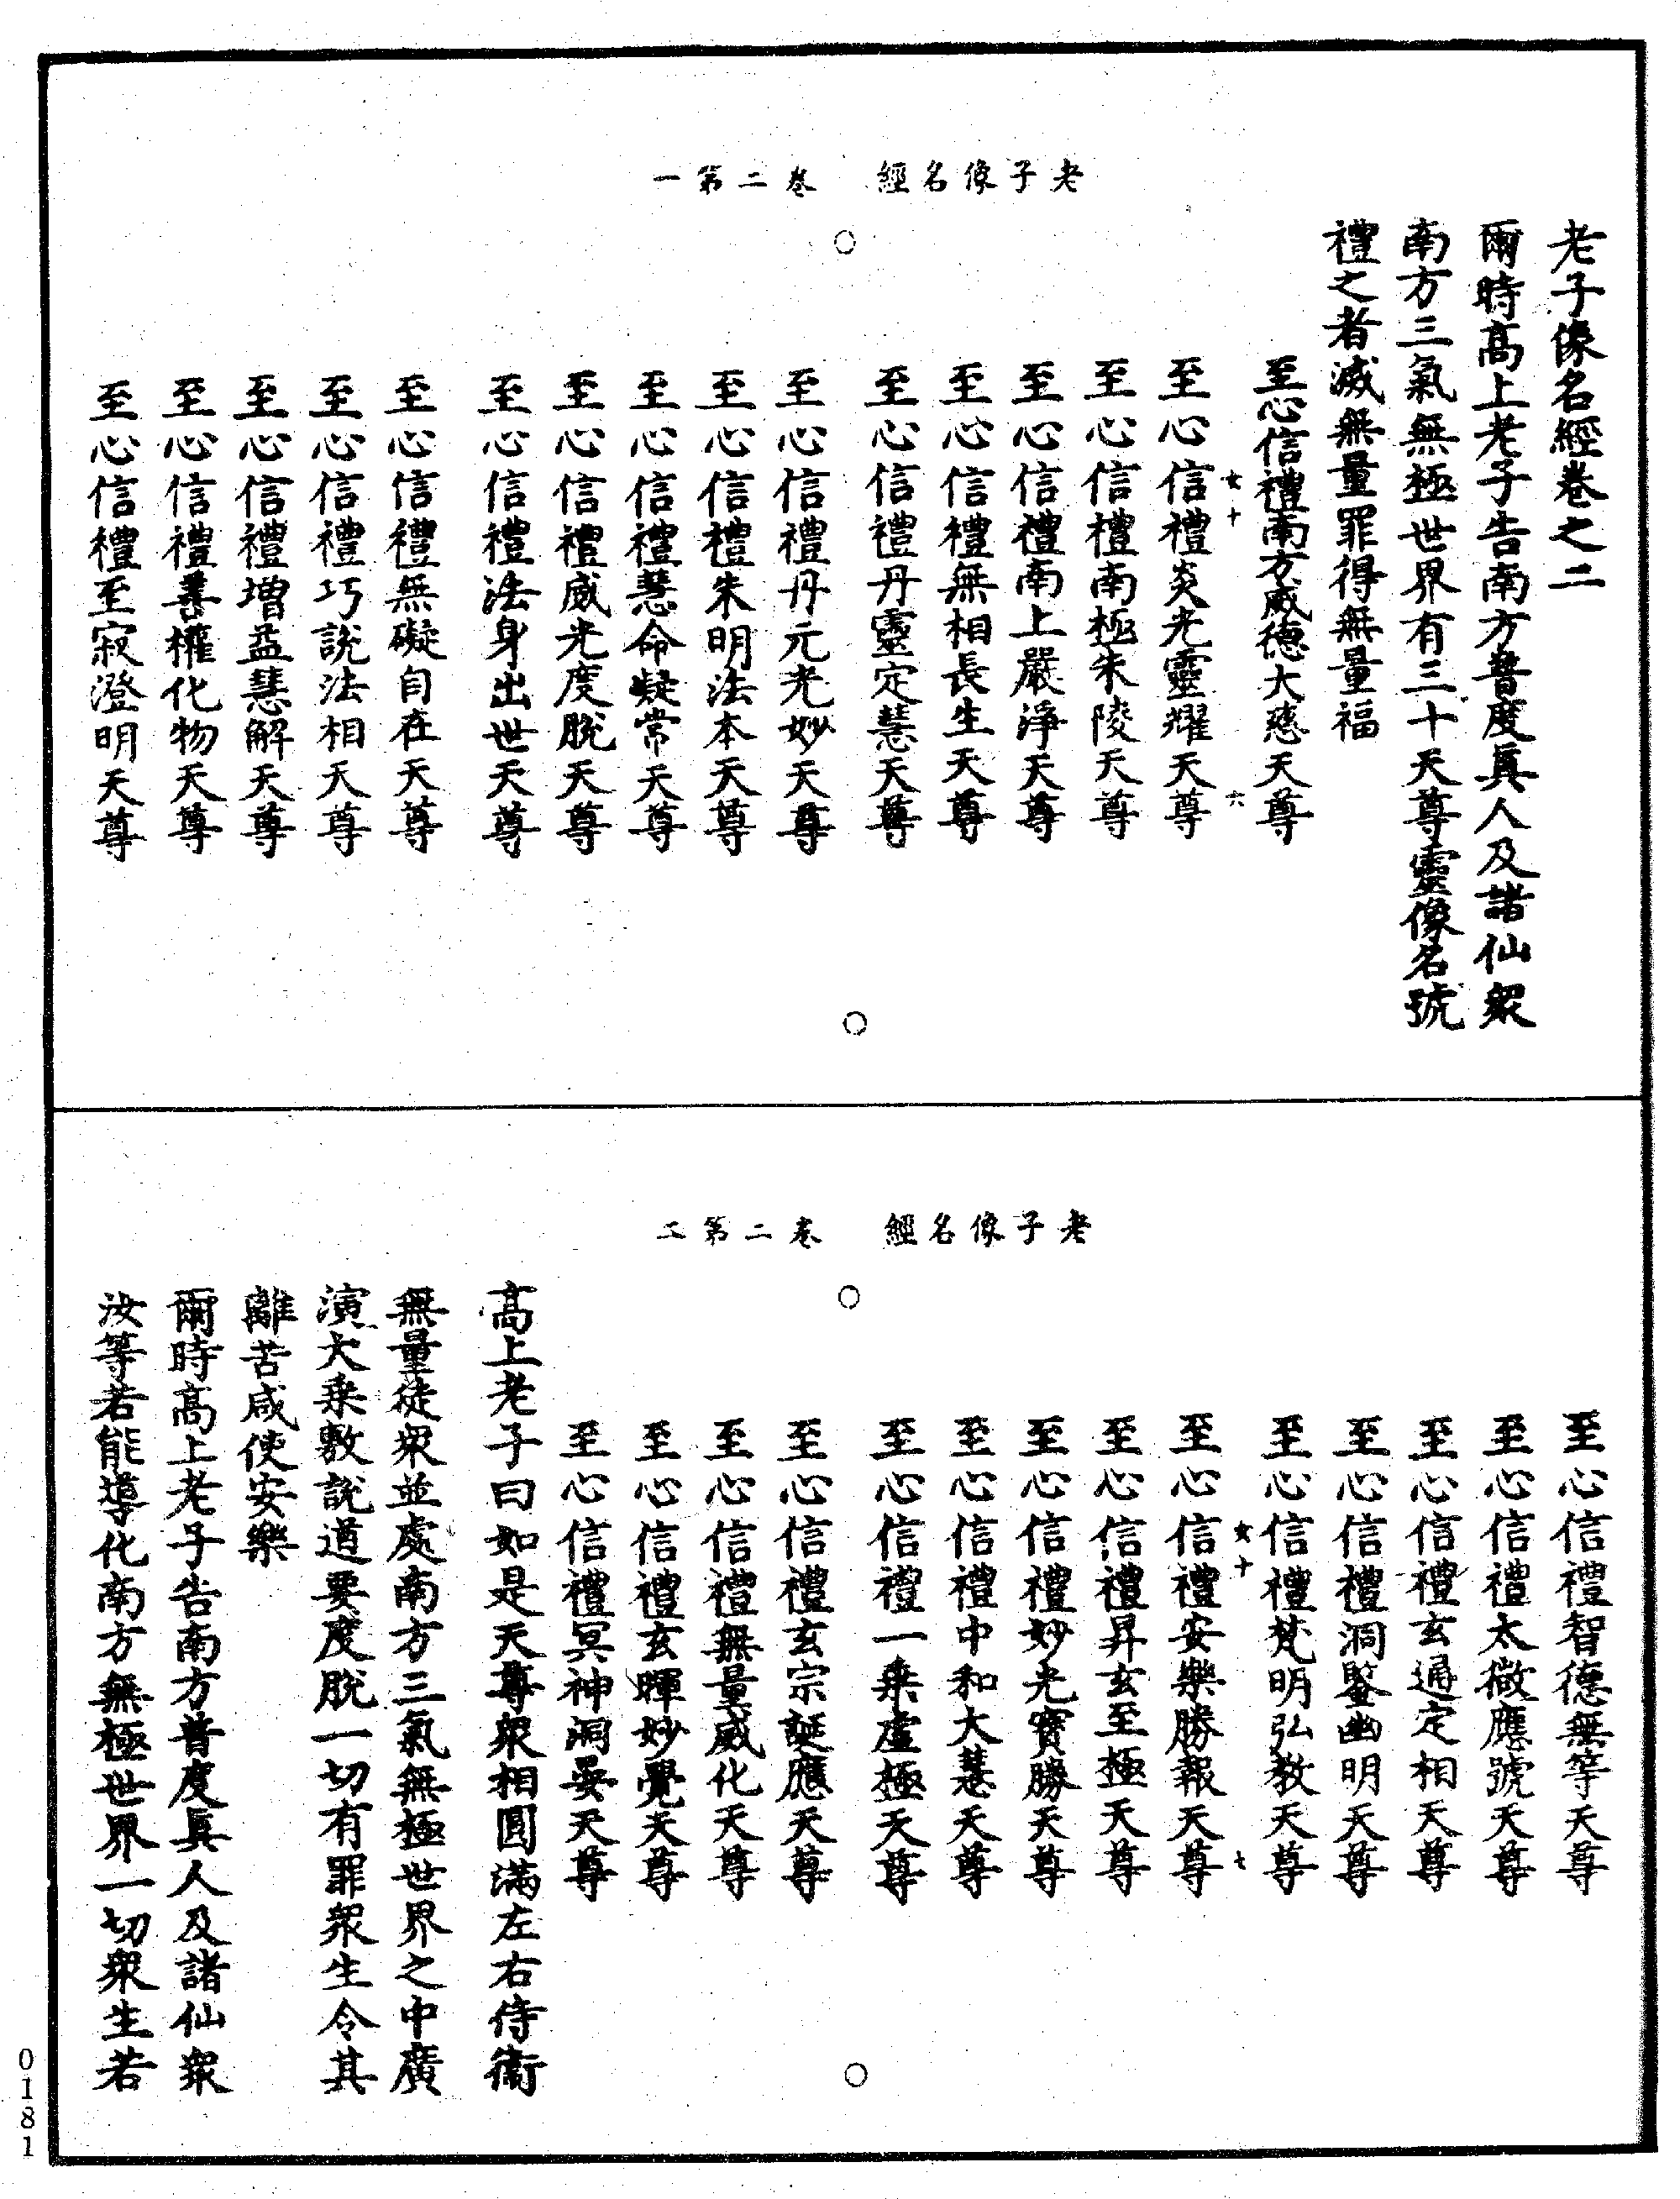 老子像名經　卷二第一
老子像名經卷之二
爾時高上老子告南方普度真人及諸仙眾
南方三氣無極世界有三十天尊靈像名號
禮之者滅無量罪得無量福
至心信禮南方威德大慈天尊
女十　六
至心信禮炎光靈耀天尊
至心信禮南極朱陵天尊
至心信禮南上嚴淨天尊
至心信禮無相長生天尊
至心信禮丹靈定慧天尊
至心信禮丹元光妙天尊
至心信禮朱明法本天尊
至心信禮慧命凝常天尊
至心信禮威光度脫天尊
至心信禮法身出世天尊
至心信禮無礙自在天尊
至心信禮巧說法相天尊
至心信禮增益慧解天尊
至心信禮善權化物天尊
至心信禮至寂澄明天尊
老子像名經　卷二第二
至心信禮智德無等天尊
至心信禮太微應號天尊
至心信禮玄通定相天尊
至心信禮洞鑒幽明天尊
至心信禮梵明弘教天尊
女十　七
至心信禮安樂勝報天尊
至心信禮昇玄至極天尊
至心信禮妙光寶勝天尊
至心信禮中和大慧天尊
至心信禮一乘虛極天尊
至心信禮玄宗誕應天尊
至心信禮無量威化天尊
至心信禮玄暉妙覺天尊
至心信禮冥神洞晏天尊
高上老子曰如是天尊眾相圓滿左右侍衛
無量徒眾並處南方三氣無極世界之中廣
演大乘敷說道要度脫一切有罪眾生令其
離苦咸使安樂
爾時高上老子告南方普度真人及諸仙眾
汝等若能導化南方無極世界一切眾生若
0181